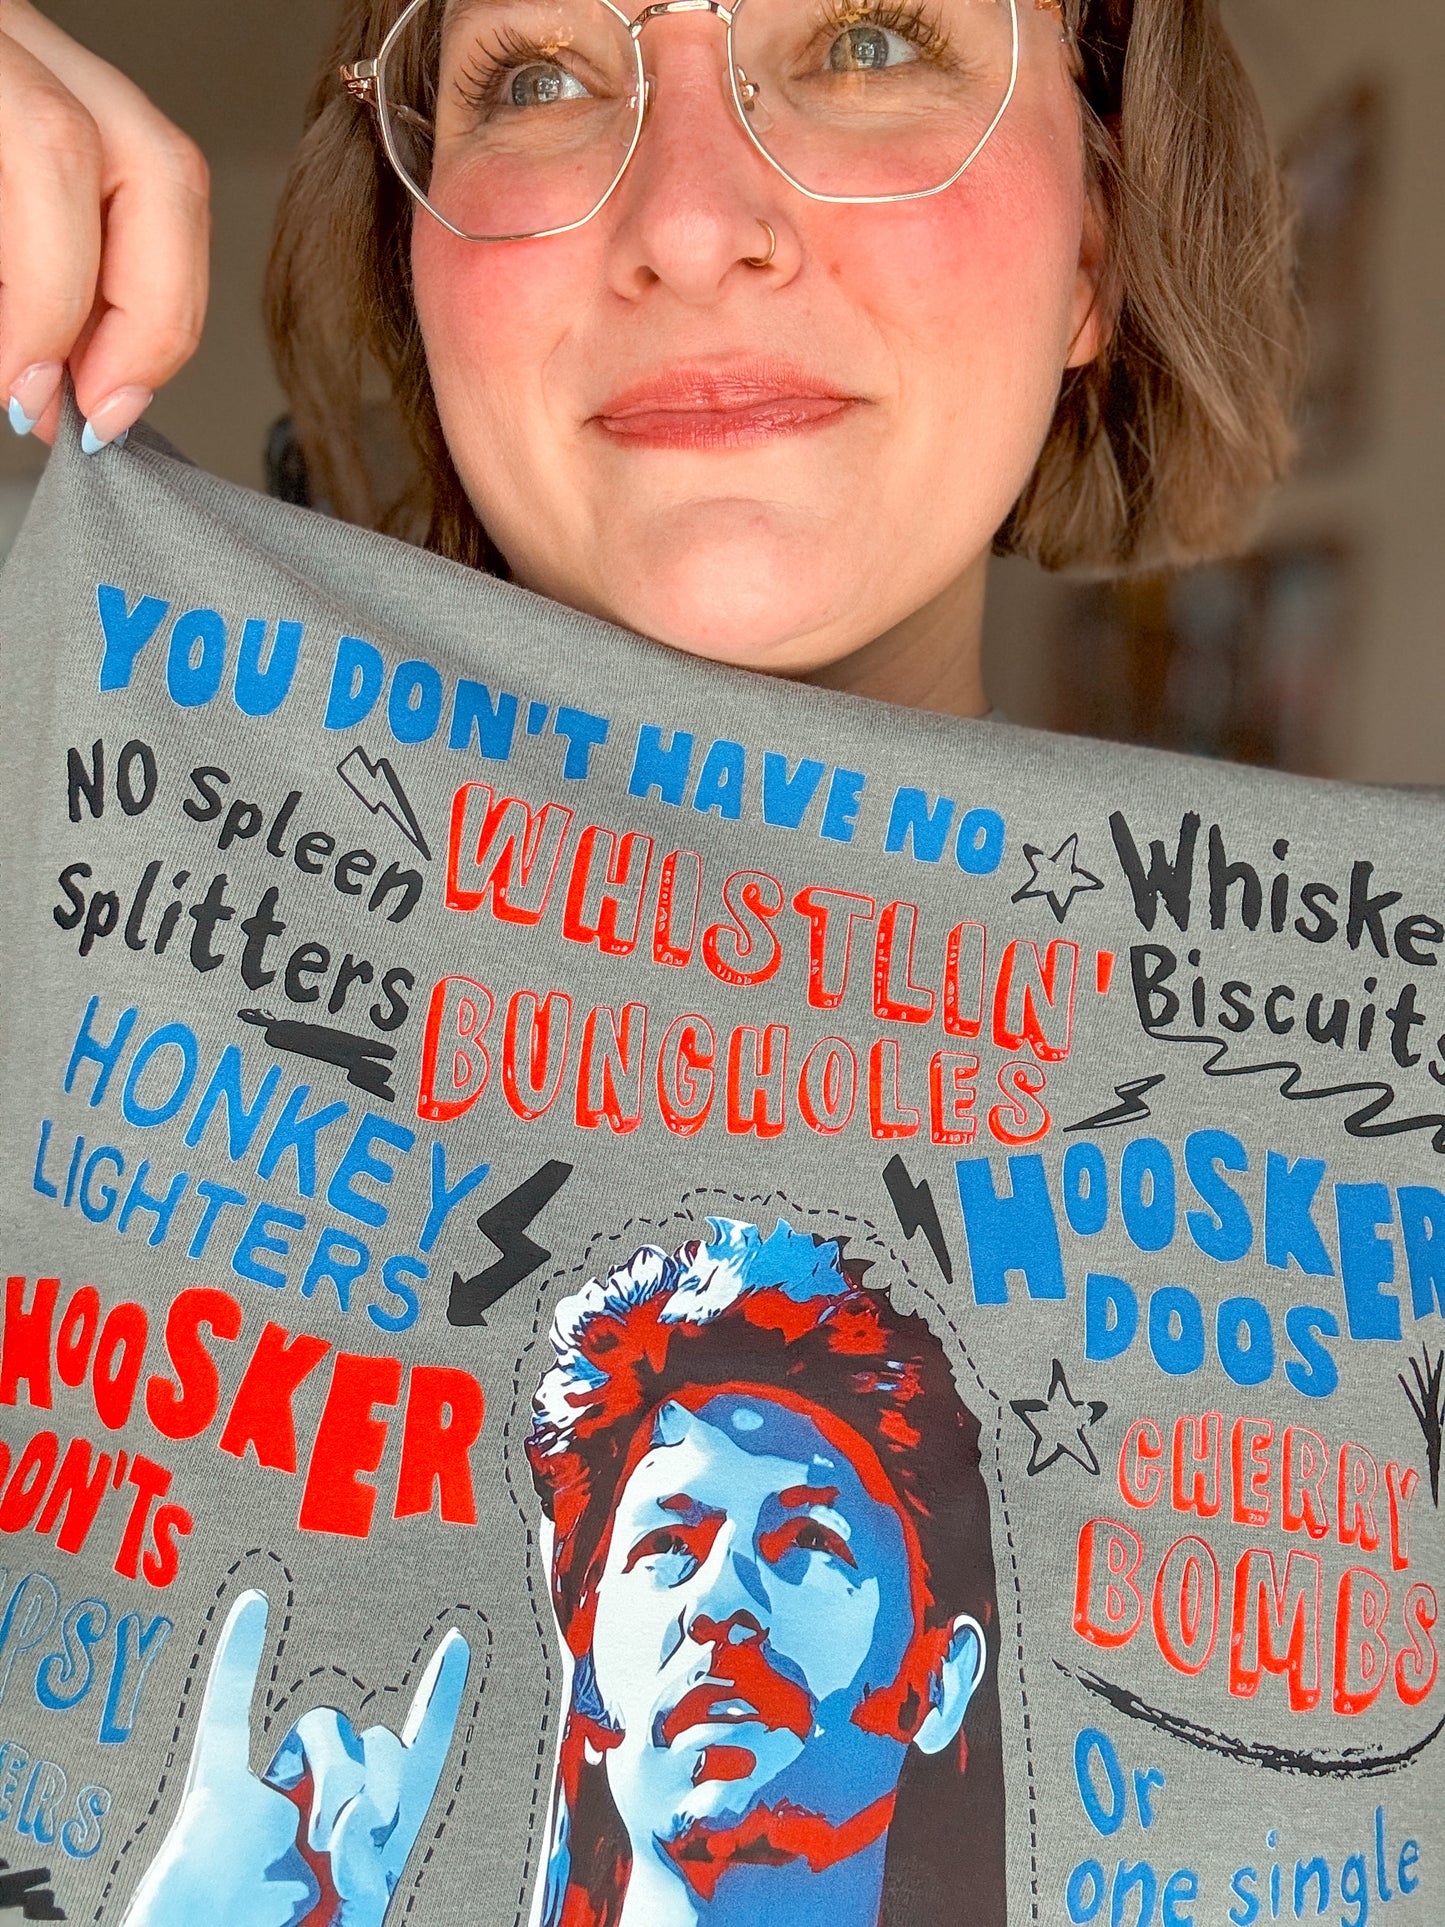 YOU DON'T HAVE NO
NO spleen
splitters
WHISTLIN'
BUNGHOLES
Whiske
Biscuits
HONKEY
LIGHTERS
HOOSKER
DOOS
HOOSKER
DON'Ts
CHERRY
BOMBS
PSY
ERS
Or
one single